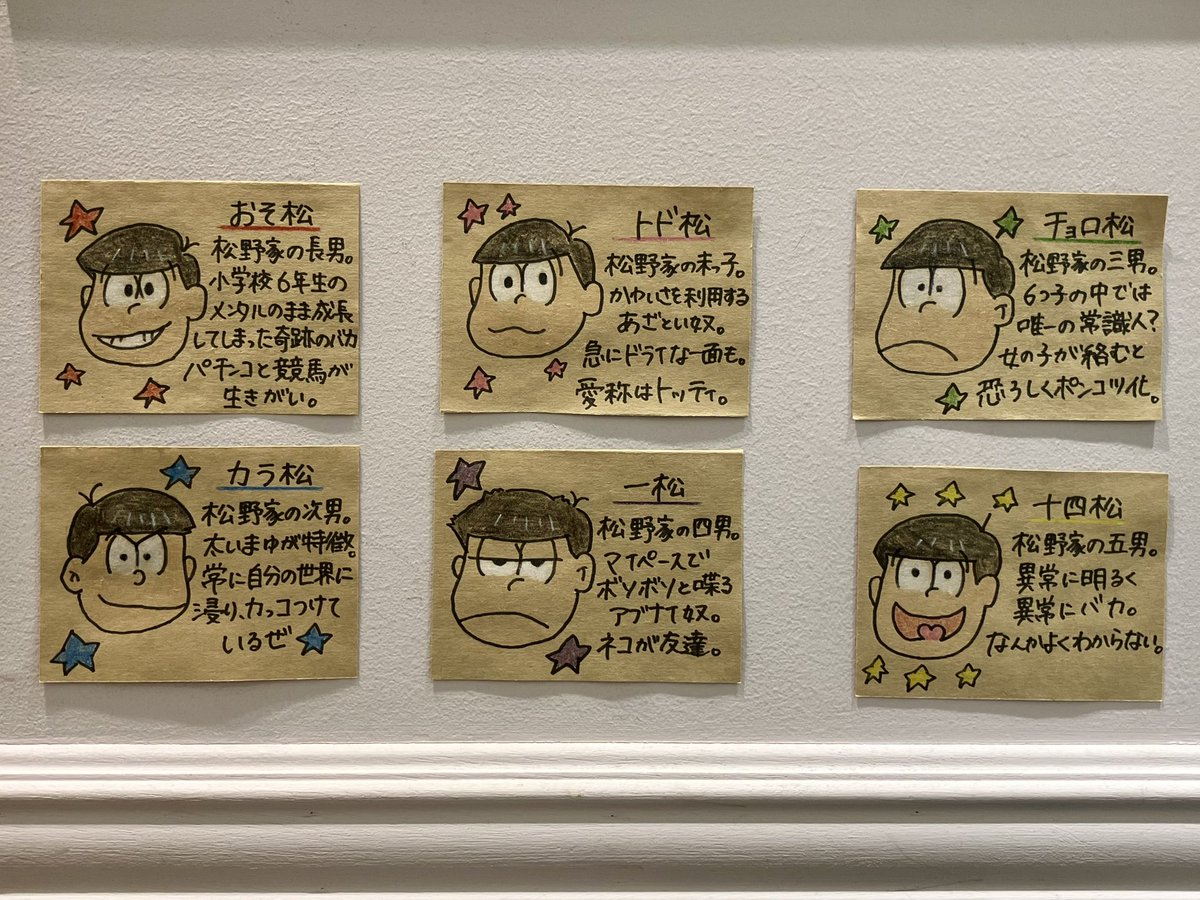 おそ松
松野家の長男。
小学校6年生の
メンタルのまま成長
してしまった奇跡のバカ
パチンコと競馬が
生きがい。
トド松
松野家の末っ子。
かわいさを利用する
あざとい奴。
急にドライな一面も。
愛称はトッティ。
チョロ松
松野家の三男。
6つ子の中では
唯一の常識人?
女の子が絡むと
恐ろしくポンコツ化。
カラ松
松野家の次男。
太いまゆが特徴。
常に自分の世界に
浸り、カッコつけて
いるぜ
一松
松野家の四男。
マイペースで
ボソボソと喋る
アブナイ奴。
ネコが友達。
十四松
松野家の五男。
異常に明るく
異常にバカ。
なんかよくわからない。